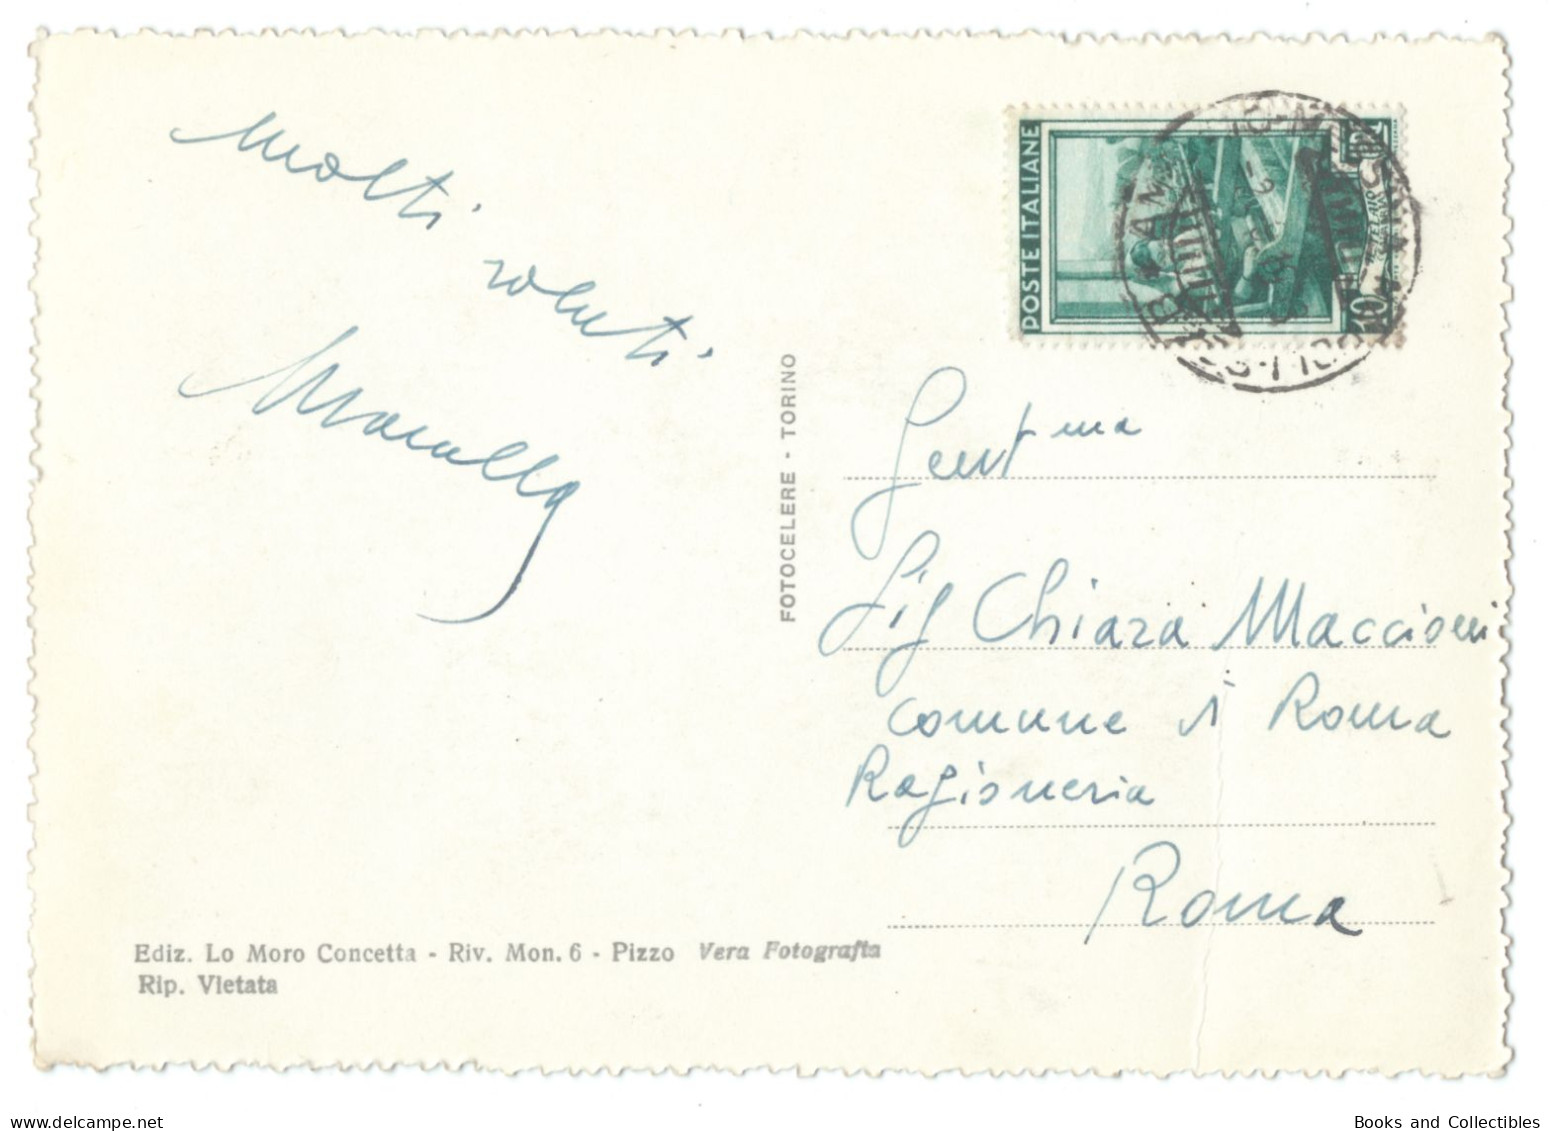 Molti
saluti
Marcello
POSTE ITALIANE
10
FOTOCELERE - TORINO
Gent ma
Sig Chiara Maccioni
Comune di Roma
Ragioneria
Roma
Ediz. Lo Moro Concetta - Riv. Mon. 6 - Pizzo Vera Fotografia
Rip. Vietata
Books and Collectibles